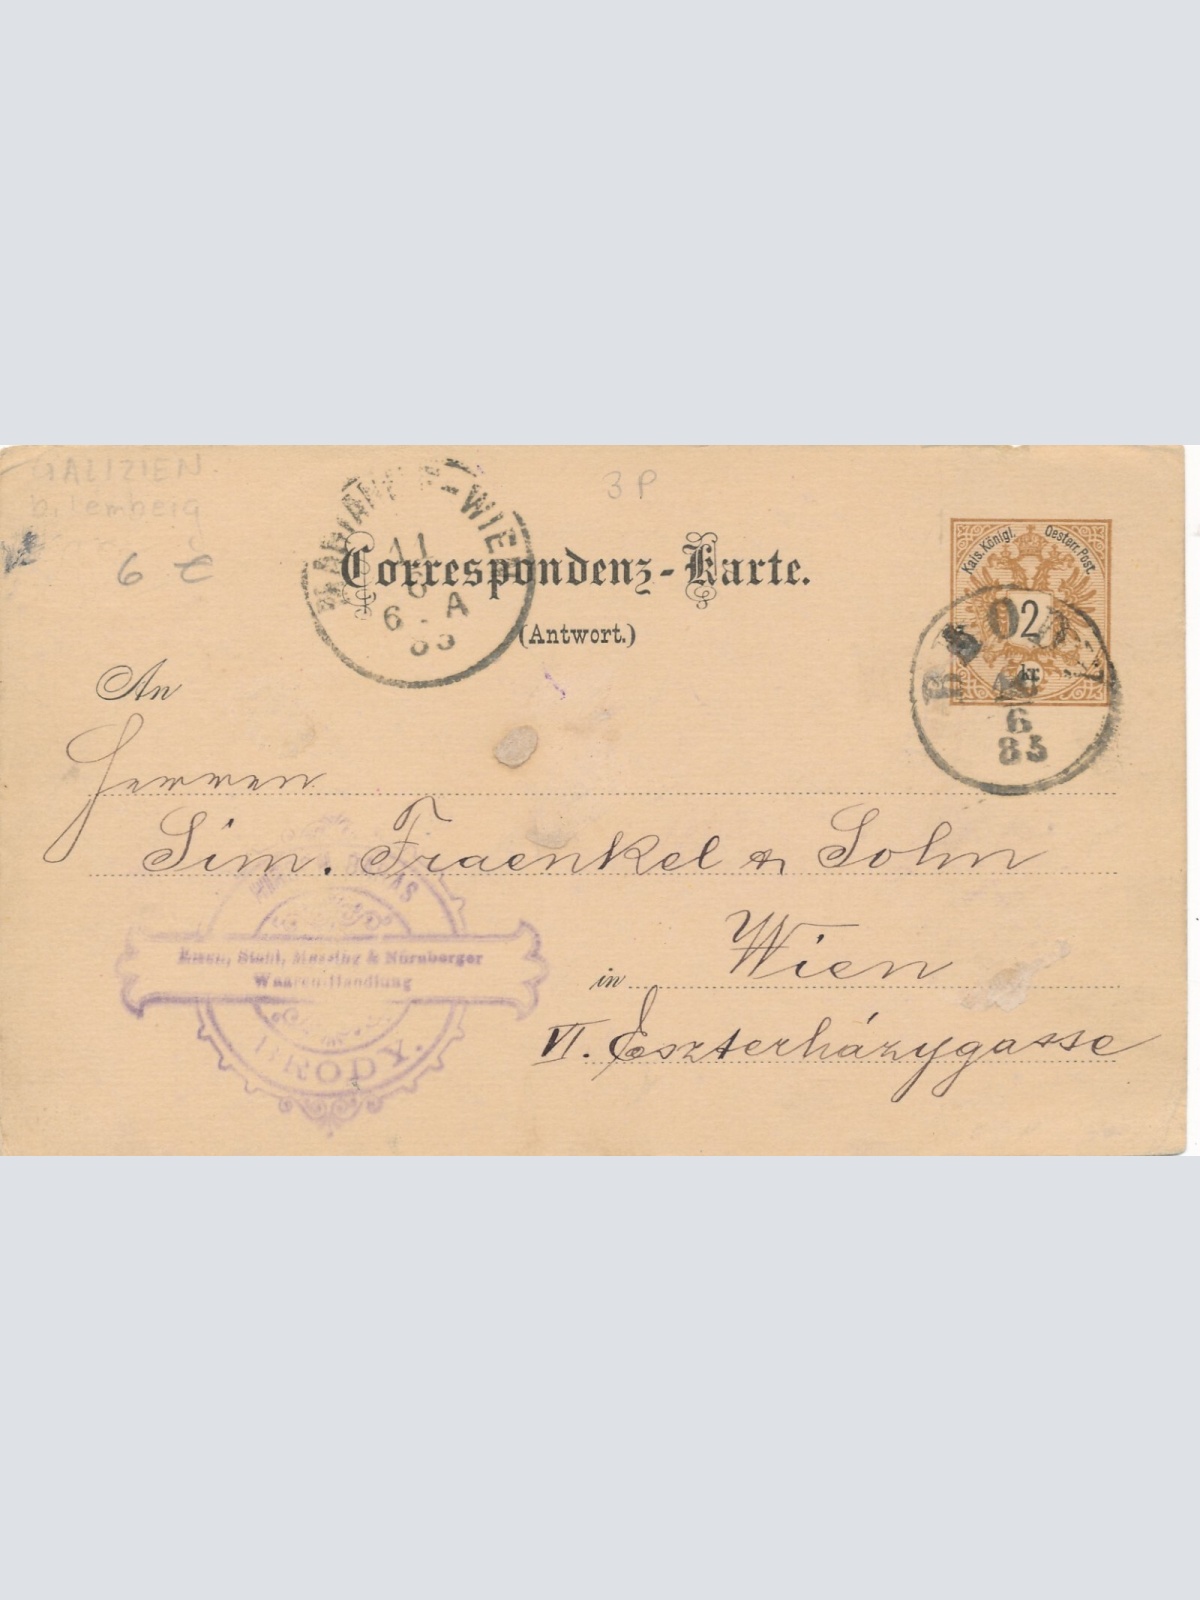 GALIZIEN
b. Lemberg
6 €
3 P
MARIAHILF-WIEN
11
6
6 . A
85
Correspondenz-Karte.
(Antwort.)
Kais. Königl. Oesterr. Post.
2
kr.
BRODY
10
6
85
An
Herren
Sim. Fraenkel & Sohn
in Wien
VI. Eszterházygasse
Eisen, Stahl, Messing & Nürnberger
Waaren-Handlung
BRODY.